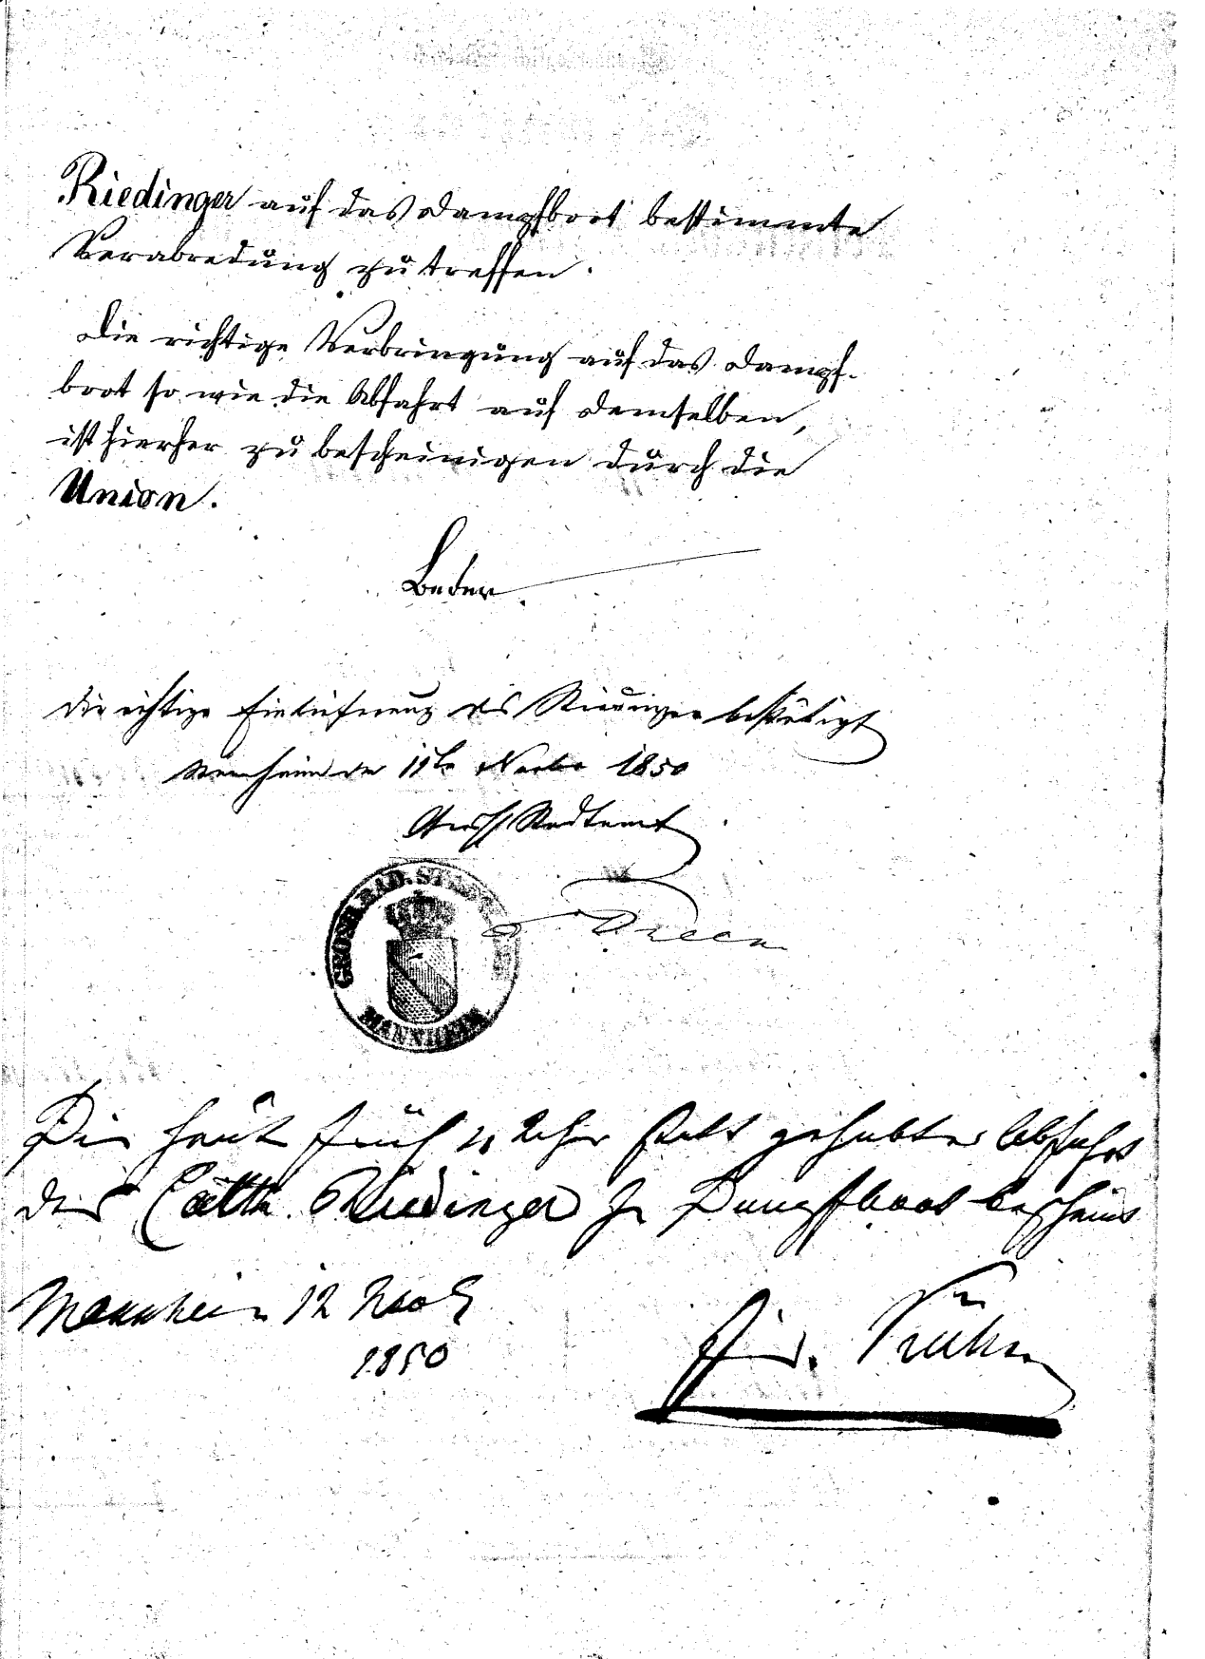 Riedinger auf das Dampfboot bestimmte
Verabredung zu treffen.
Die richtige Verbringung auf das Dampf-
boot so wie die Abfahrt auf demselben,
ist hierher zu bescheinigen durch die
Union.
Beder
die richtige Einlieferung des Riedinger bestätigt
Mannheim den 11ten Novbr 1850
Großh Stadtamt
GROSH. BAD. STADT
MANNHEIM
Die heute früh Uhr statt gehabte Abfahrt
des Cath. Riedinger pr Dampfboot bescheint
Mannheim 12 Novb
1850